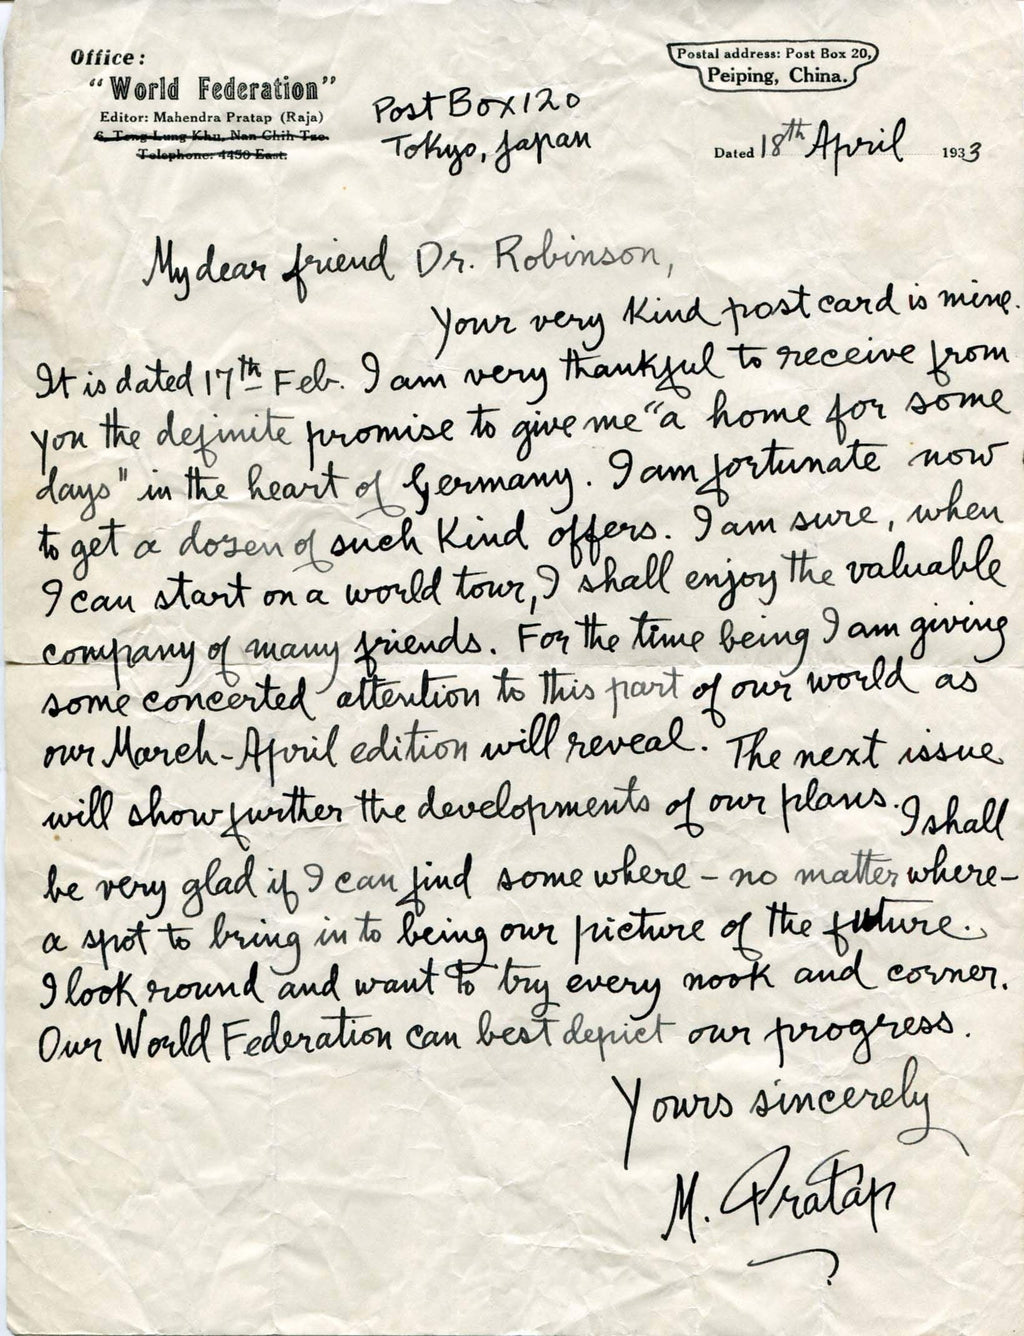 Office:
"World Federation"
Editor: Mahendra Pratap (Raja)
6, Teng Lung Khu, Nan Chih Tze.
Telephone: 4450 East.
Post Box 120
Tokyo, Japan
Postal address: Post Box 20,
Peiping, China.
Dated 18th April 1933
My dear friend Dr. Robinson,
Your very kind post card is mine.
It is dated 17th Feb. I am very thankful to receive from
you the definite promise to give me "a home for some
days" in the heart of Germany. I am fortunate now
to get a dozen of such kind offers. I am sure, when
I can start on a world tour, I shall enjoy the valuable
company of many friends. For the time being I am giving
some concerted attention to this part of our world as
our March-April edition will reveal. The next issue
will show further the developments of our plans. I shall
be very glad if I can find some where – no matter where –
a spot to bring in to being our picture of the future.
I look round and want to try every nook and corner.
Our World Federation can best depict our progress.
Yours sincerely
M. Pratap